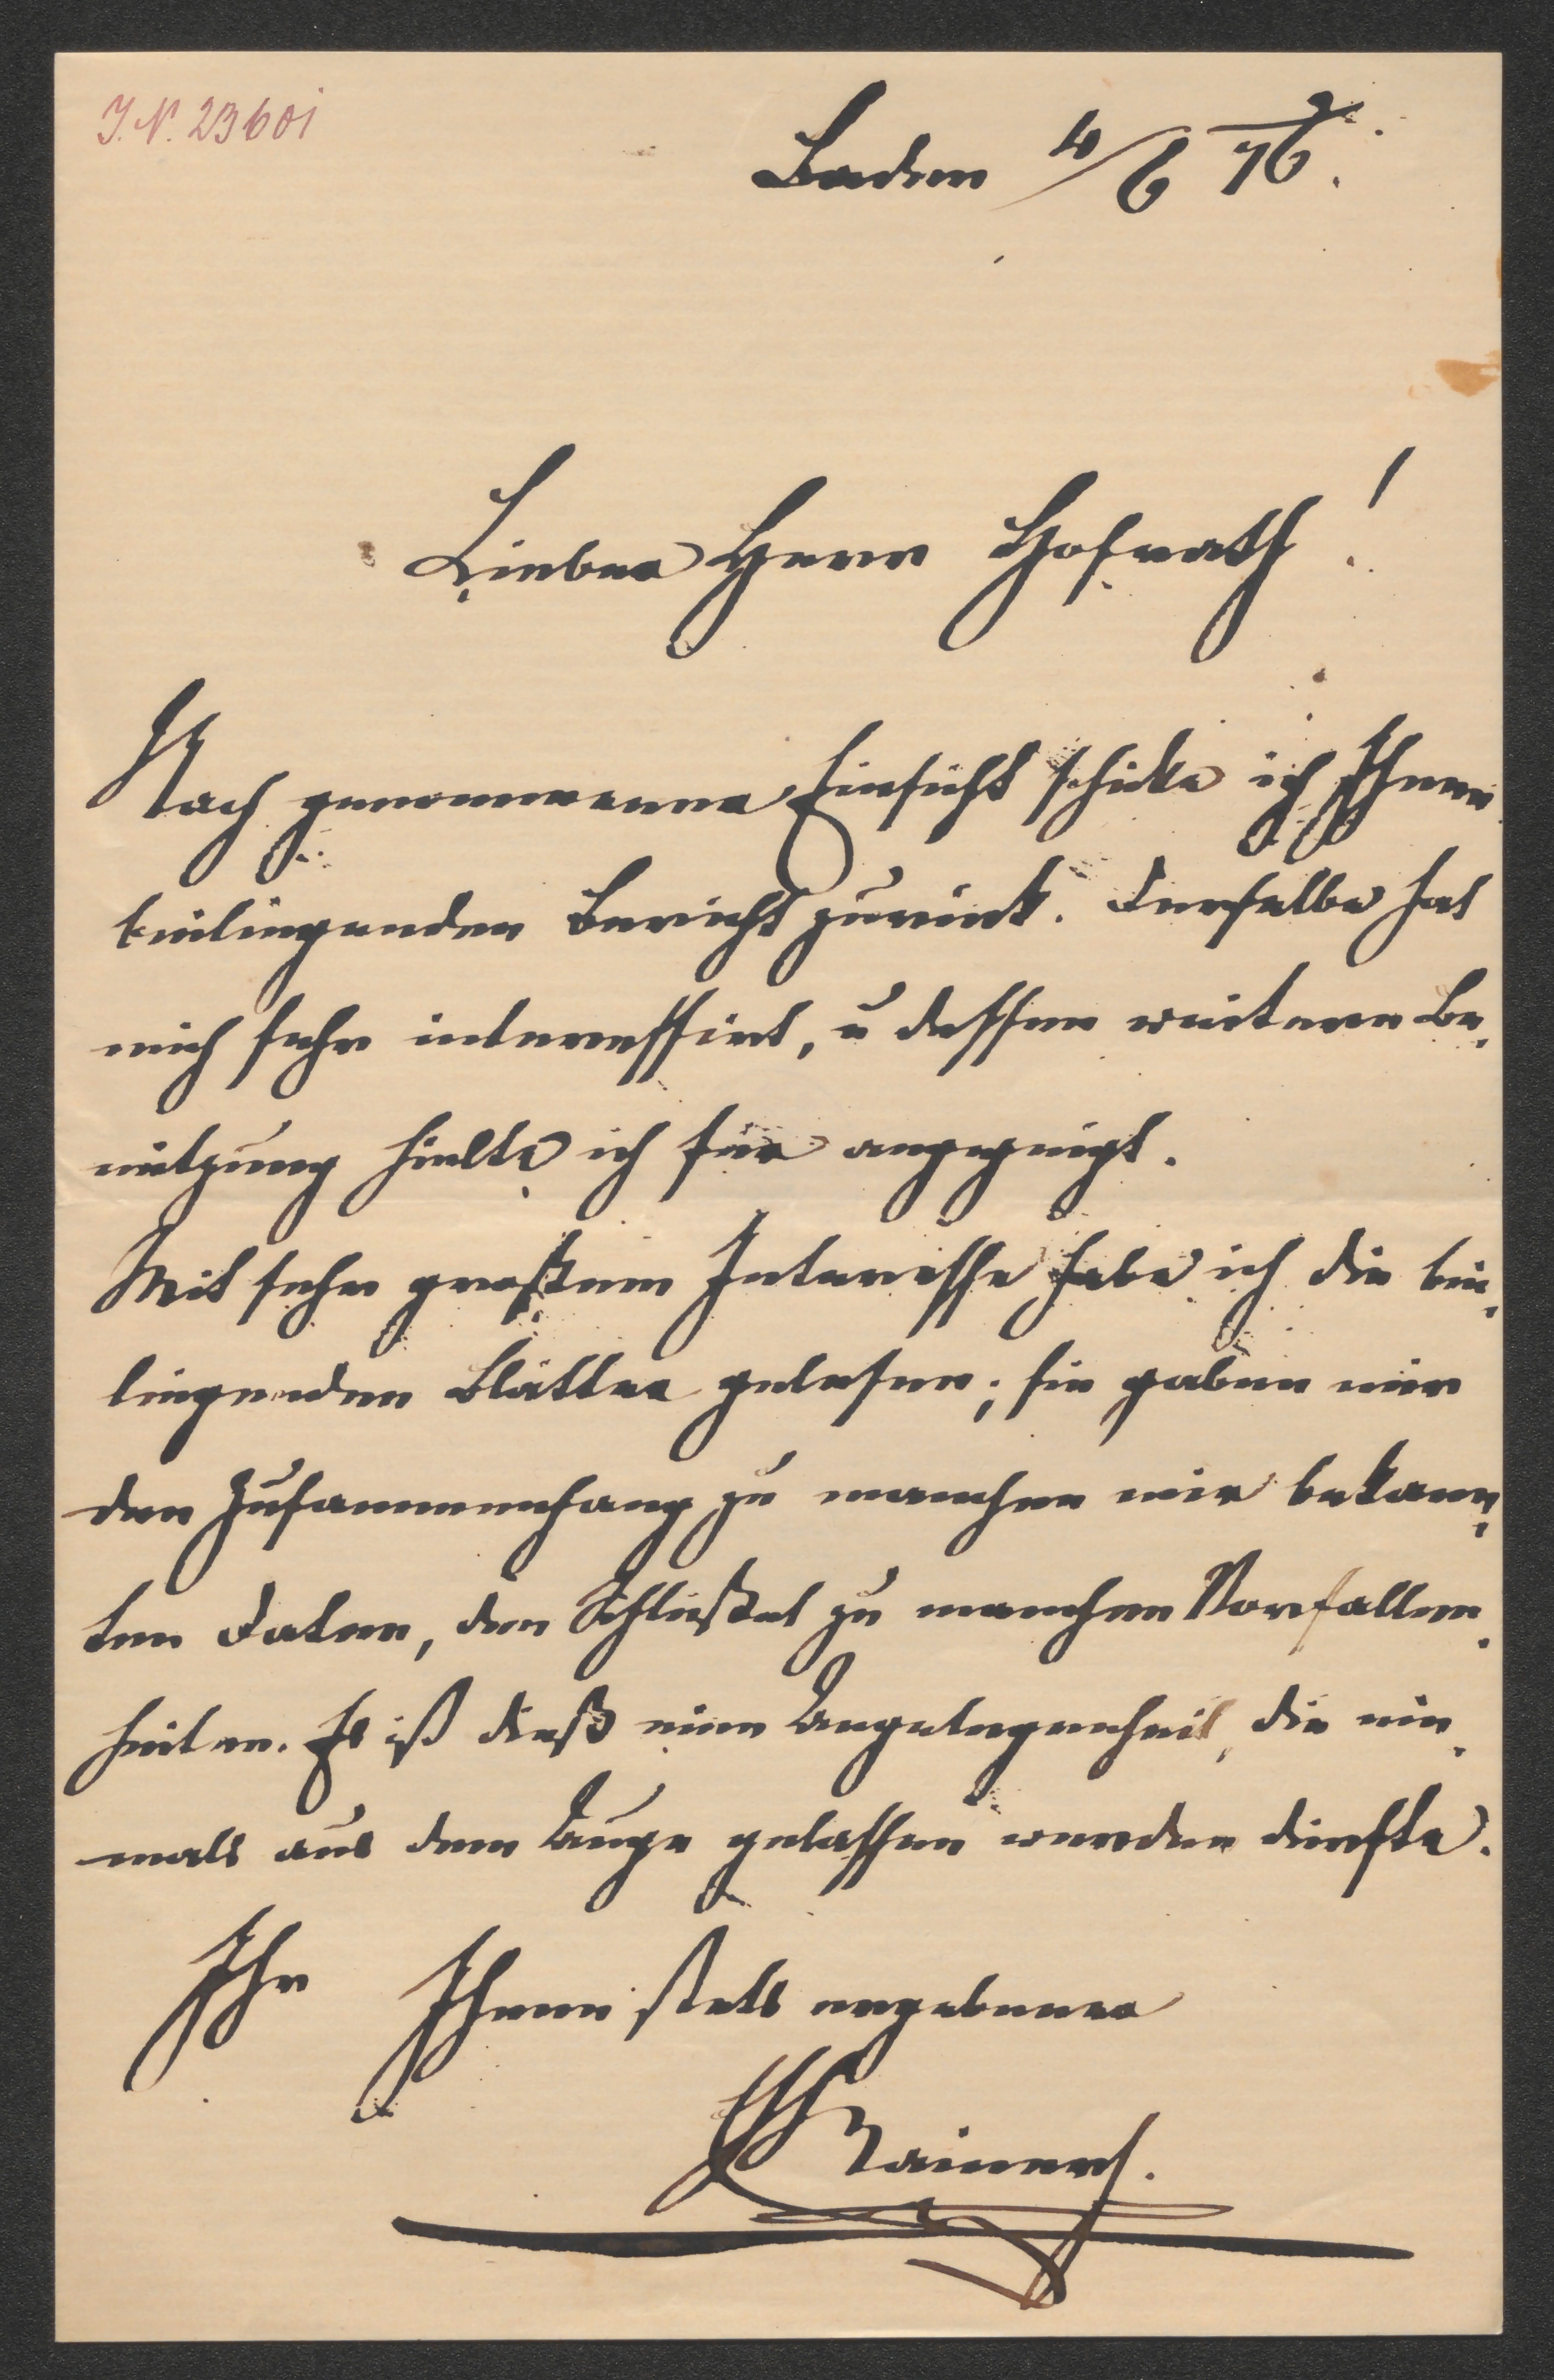 J.N. 23601
Baden 4/6 76.
Lieber Herr Hofrath!
Nach genommener Einsicht schicke ich Ihnen
beiliegenden Bericht zurück. Derselbe hat
mich sehr interessirt, u dessen weitere Be„
nützung hielte ich für angezeigt.
Mit sehr großem Interesse habe ich die bei„
liegenden Blätter gelesen; sie gaben mir
den Zusammenhang zu manchen mir bekann„
ten Daten, den Schlüßel zu manchen Vorfallen„
heiten. Es ist dieß eine Angelegenheit, die nie„
mals aus dem Auge gelassen werden dürfte.
Ihr Ihnen stets ergebener
Rainer